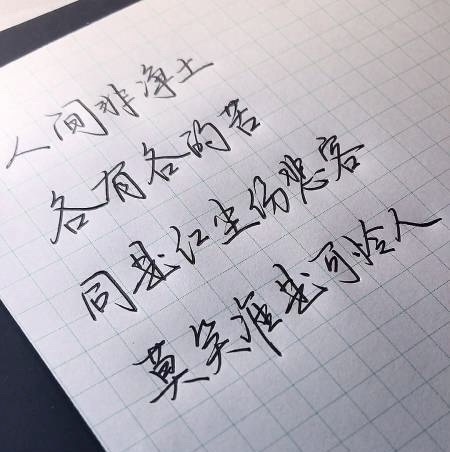 人间非净土
各有各的苦
同是红尘伤悲客
莫笑谁是可怜人